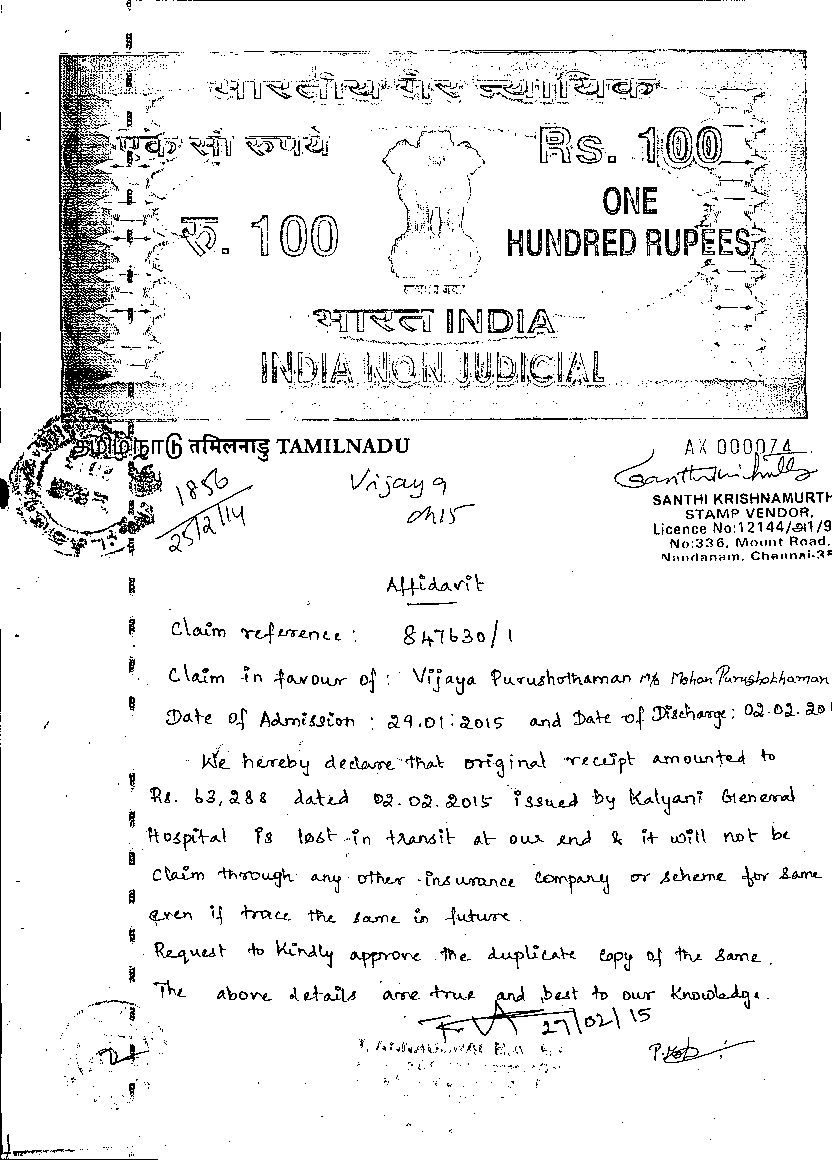 भारतीय गैर न्यायिक
एक सौ रुपये
Rs. 100
रु. 100
ONE
HUNDRED RUPEES
सत्यमेव जयते
भारत INDIA
INDIA NON JUDICIAL
தமிழ்நாடு तमिलनाडु TAMILNADU
AX 000074
1856
25/2/14
Vijaya
ch15
SANTHI KRISHNAMURTH
STAMP VENDOR,
Licence No:12144/அ1/9
No:336, Mount Road,
Nandanam, Chennai-35
Affidavit
Claim reference : 847630/1
Claim in favour of : Vijaya Purushothaman M/o Mohan Purushothaman
Date of Admission : 29.01.2015 and Date of Discharge: 02.02.201
We hereby declare that original receipt amounted to
Rs. 63,288 dated 02.02.2015 issued by Kalyani General
Hospital is lost in transit at our end & it will not be
claim through any other insurance company or scheme for same
even if trace the same in future.
Request to kindly approve the duplicate copy of the same.
The above details are true and best to our knowledge.
27/02/15